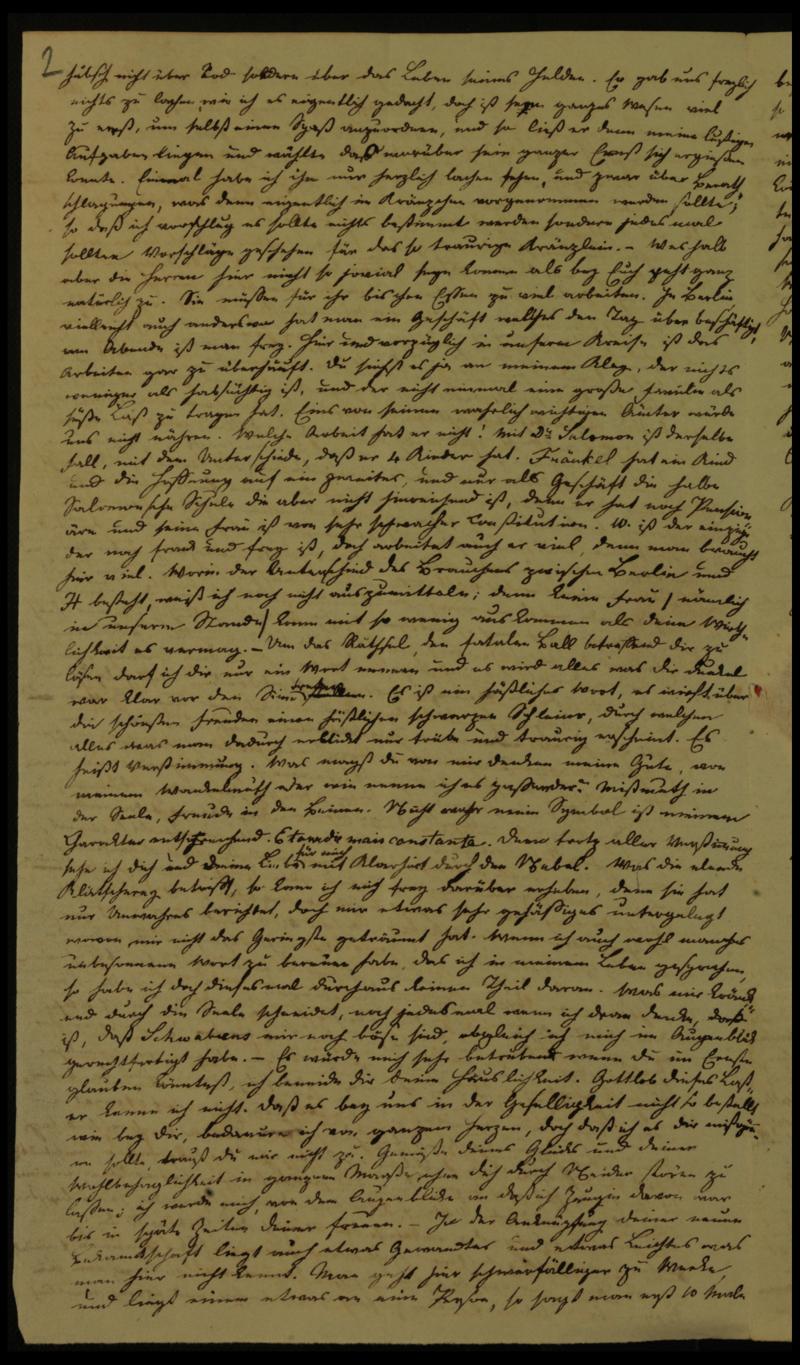 2
hübsch nicht über Tod sondern über das Leben seines Helden. Er gab uns freylich
nichts zu lachen wie ich es eigentlich gedacht, doch ist sein ganzes Wesen viel
zu ernst, um selbst einen Spaß anzuordnen, und so ließ er denn meine lustigen
Aufgaben liegen und wählte das worüber sein ganzer Ernst sich ergießen
konnte. Einmal habe ich ihn nur herzlich lachen sehen, und zwar über Berath
schlagungen, was denn eigentlich im Kränzchen vorgenommen werden sollte,
so daß ich vorschlug es sollte nichts bestimmt werden sondern jedes mal
sollten Vorschläge geschehen für das so traurige Kränzlein. – Weshalb
aber die Herren hier nicht so jovial seyn können als bey Euch geht ganz
natürlich zu. Sie müßen für ihr bischen Essen zu viel arbeiten. In Berlin
vielleicht auch anderswo hat man ein Geschäft welches den Tag über beschäftigt,
am Abende ist man frey. Hier und vorzüglich in unserm Kreise ist das
Arbeiten gar zu überhäuft. Du siehst es ja an meinem Kley, der nichts
weniger als habsüchtig ist, und der nicht einmal eine große Familie als
süße Last zu tragen hat. Eins von seinen wahrlich wichtigen Ämter würde
uns nicht nähren. Welche Arbeit hat er nicht! Mit Dr Salomon ist derselbe
Fall, mit dem Unterschiede, daß er 4 Kinder hat. Fränkel hat ein Kind
und die Hoffnung auf ein zweites, und nur als Geschäft die halbe
Salomonsche Schule die aber nicht hinreichend ist, denn er hat noch Pension
äre und seine Frau ist von sehr schwacher Constitution. W. ist der einzige
der noch frank und frey ist, doch arbeitet auch er viel, denn man braucht
hier viel. Worin der Unterschied des Brauchens zwischen Berlin und
H besteht, weiß ich noch nicht auszumitteln; denn keine Frau / nämlich
in unserm Stande / kann mit so wenig auskommen als deine Wirth
lichkeit es vermag. – Um das Räthsel, den fatalen Ball betreffend dir zu
lösen darf ich dir nur ein Wort nennen und es wird alles was dir dunkel
war klar vor den Sinn. Es ist ein häßliches Wort, es wirft über
die schönsten Freuden einen häßlichen schwarzen Schleier, durch welchen
alles was man dadurch erblickt nur trübe und traurig erscheint. Es
heißt Verstimmung. Was magst du von mir denken meine Gute, von
meinem Wankelmuth oder wie nenne ich es passender? Mißmuth in
der Seele, Freude in den Beinen. Nicht wahr mein Symbol ist meinem
Charakter entsprechend. Etourdie mais constante. Denn trotz aller Verstimmung
sehe ich dich und deine Liebe für mich mit Klarheit durch den Nebel. Was die elende
Klatscherey betrifft, so kann ich mich frey darüber erheben, denn sie hat
nur Unwahres berichtet, doch mir etwas sehr gehäßiges untergelegt
wovon mir nicht das Geringste geträumt hat. Wenn ich auch wohl manches
unbesonnene Wort zu bereuen habe, das ich in meinem Leben gesprochen,
so habe ich doch diesesmal durchaus keinen Theil daran. Was mir kränkt
und durch die Seele schneidet, noch jedesmal wenn ich daran denke,
ist, daß Schwabens mir noch böse sind, obgleich ich mich im Augenblick
gerechtfertigt habe. – Es würde mich sehr betrüben wenn du im Ernste
glauben könntest, ich beneide dir deine Häuslichkeit. Gottlob dieses Last
er kenne ich nicht. Daß es bey uns in der Geselligkeit nicht so bestellt
wie bey dir, bedaure ich von ganzem Herzen, doch daß ich es dir mißgön
en sollte, traust du mir nicht zu. Genieße deines Glücks und deiner
Wohlbehaglichkeit in ganzem Maaße ohne dich durch Neider stören zu
laßen; ich werde mich, von dem Augenblicke an daß ich Zeugin davon war
bis in späte Zeiten deiner freuen. – In der Anknüpfung deiner neuen
Bekanntschaft liegt auch etwas Gewandtes und etwas Leichtes was
man hier nicht kennt. Man geht hier schwerfälliger zu Werke,
und liegt einem etwas an eine Person, so sagt man erst 10 Male